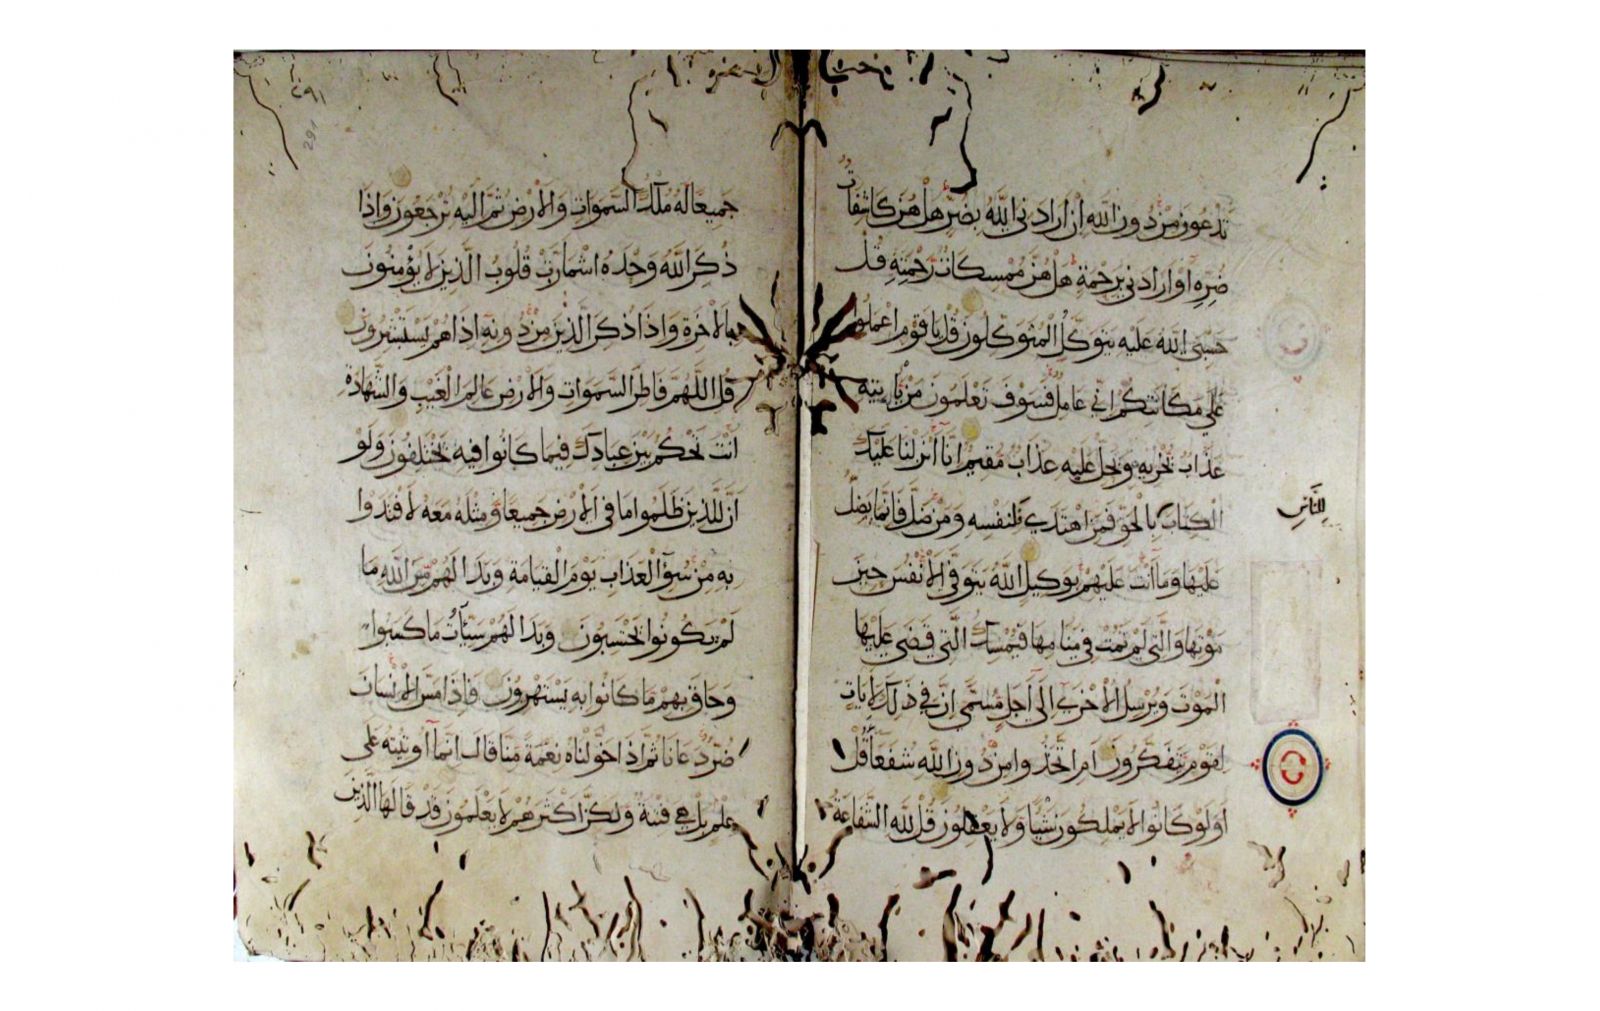 تدعون من دون الله ان ارادني الله بضر هل هن كاشفات
ضره او ارادني برحمة هل هن ممسكات رحمته قل
حسبي الله عليه يتوكل المتوكلون قل يا قوم اعملوا
على مكانتكم اني عامل فسوف تعلمون من ياتيه
عذاب يخزيه ويحل عليه عذاب مقيم انا انزلنا عليك
للناس
الكتاب بالحق فمن اهتدى فلنفسه ومن ضل فانما يضل
عليها وما انت عليهم بوكيل الله يتوفى الانفس حين
موتها والتي لم تمت في منامها فيمسك التي قضى عليها
الموت ويرسل الاخرى الى اجل مسمى ان في ذلك لايات
لقوم يتفكرون ام اتخذوا من دون الله شفعا قل
اولو كانوا لا يملكون شيا ولا يعقلون قل لله الشفاعة
٢٩١
291
جميعا له ملك السموات والارض ثم اليه ترجعون واذا
ذكر الله وحده اشمازت قلوب الذين لا يؤمنون
بالاخرة واذا ذكر الذين من دونه اذا هم يستبشرون
قل اللهم فاطر السموات والارض عالم الغيب والشهادة
انت تحكم بين عبادك فيما كانوا فيه يختلفون ولو
ان للذين ظلموا ما في الارض جميعا ومثله معه لافتدوا
به من سوء العذاب يوم القيامة وبدا لهم من الله ما
لم يكونوا يحتسبون وبدا لهم سيئات ما كسبوا
وحاق بهم ما كانوا به يستهزون فاذا مس الانسان
ضر دعانا ثم اذا خولناه نعمة منا قال انما اوتيته على
علم بل هي فتنة ولكن اكثرهم لا يعلمون قد قالها الذين